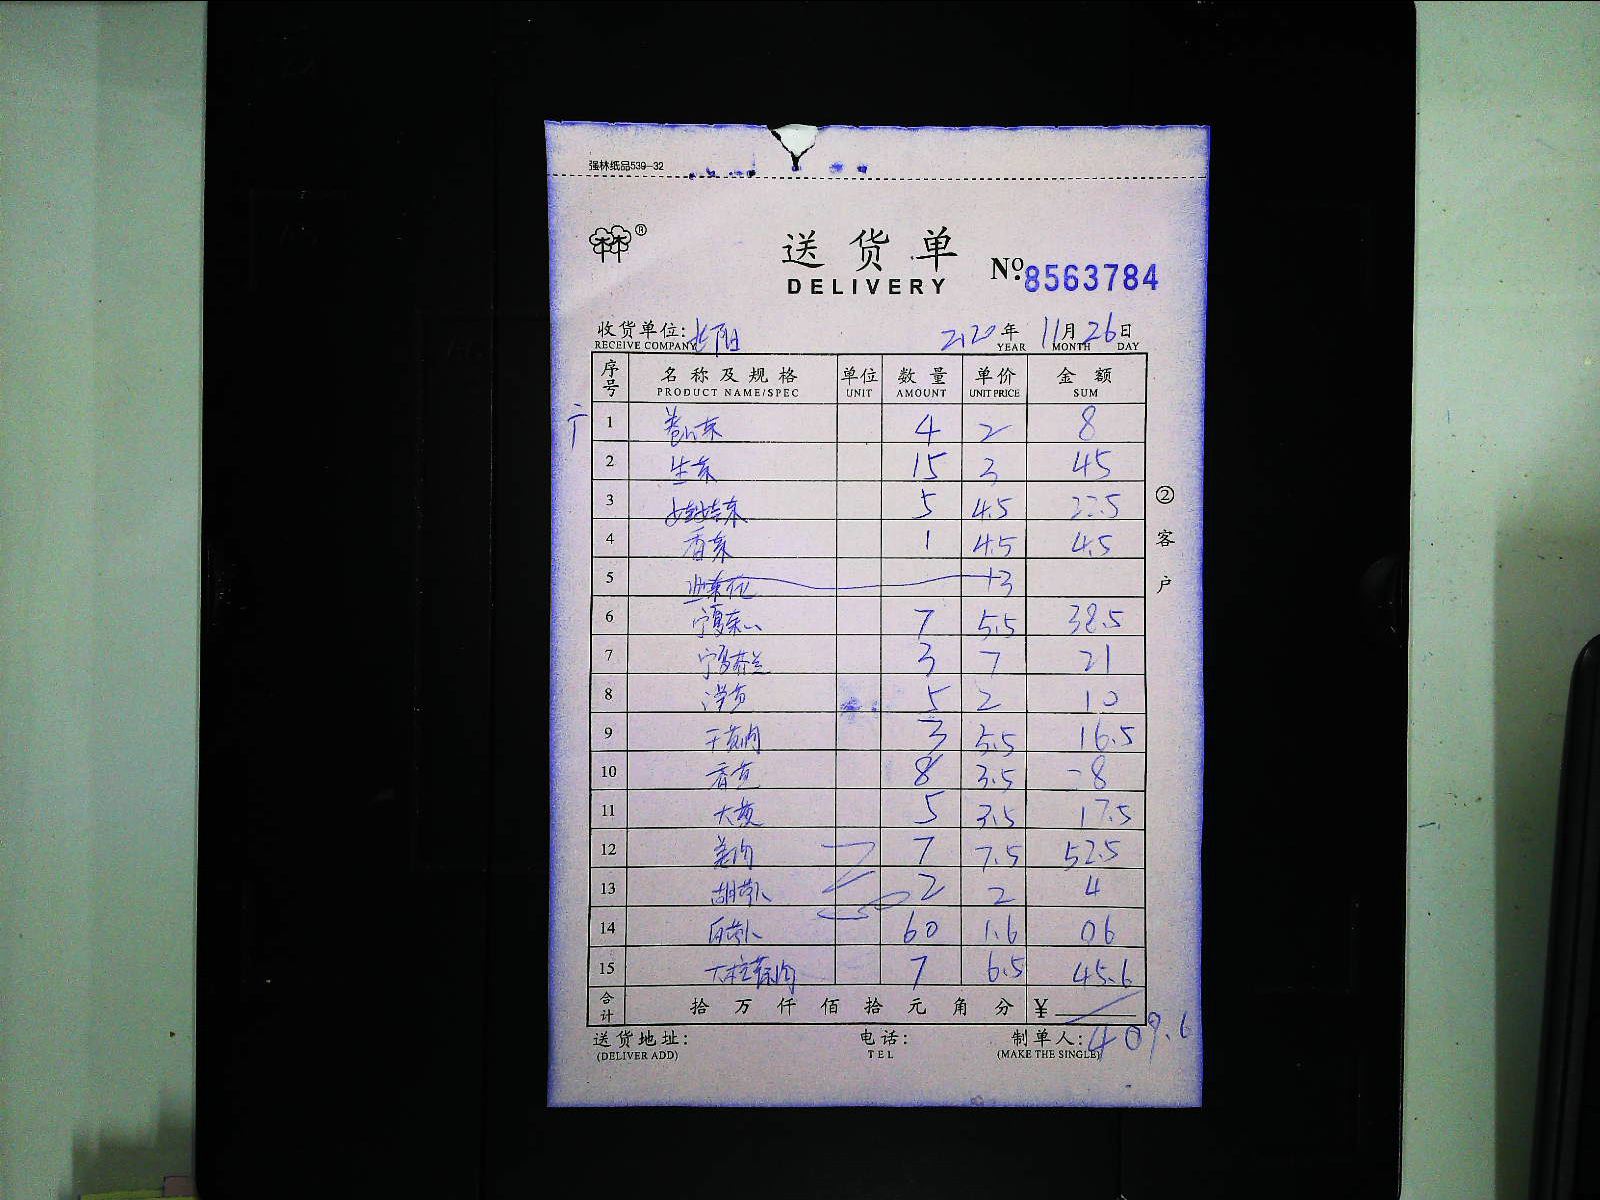 强林纸品539-32
林®
送货单
DELIVERY
No.8563784
收货单位: 长阳 2020年 11月 26日
RECEIVE COMPANY YEAR MONTH DAY
序号 名称及规格 单位 数量 单价 金额
PRODUCT NAME/SPEC UNIT AMOUNT UNIT PRICE SUM
1 卷心菜 4 2 8
2 生菜 15 3 45
3 娃娃菜 5 4.5 22.5
4 香菜 1 4.5 4.5
5 +3
6 宁夏菜心 7 5.5 38.5
7 宁夏芥兰 3 7 21
8 洋 5 2 10
9 3 5.5 16.5
10 香 8 3.5 28
11 大 5 3.5 17.5
12 7 7.5 52.5
13 胡萝卜 2 2 4
14 白萝卜 60 1.6 06
15 7 6.5 45.6
合计 拾万仟佰拾元角分 ¥
409.6
送货地址: 电话: 制单人:
(DELIVER ADD) TEL (MAKE THE SINGLE)
②客户